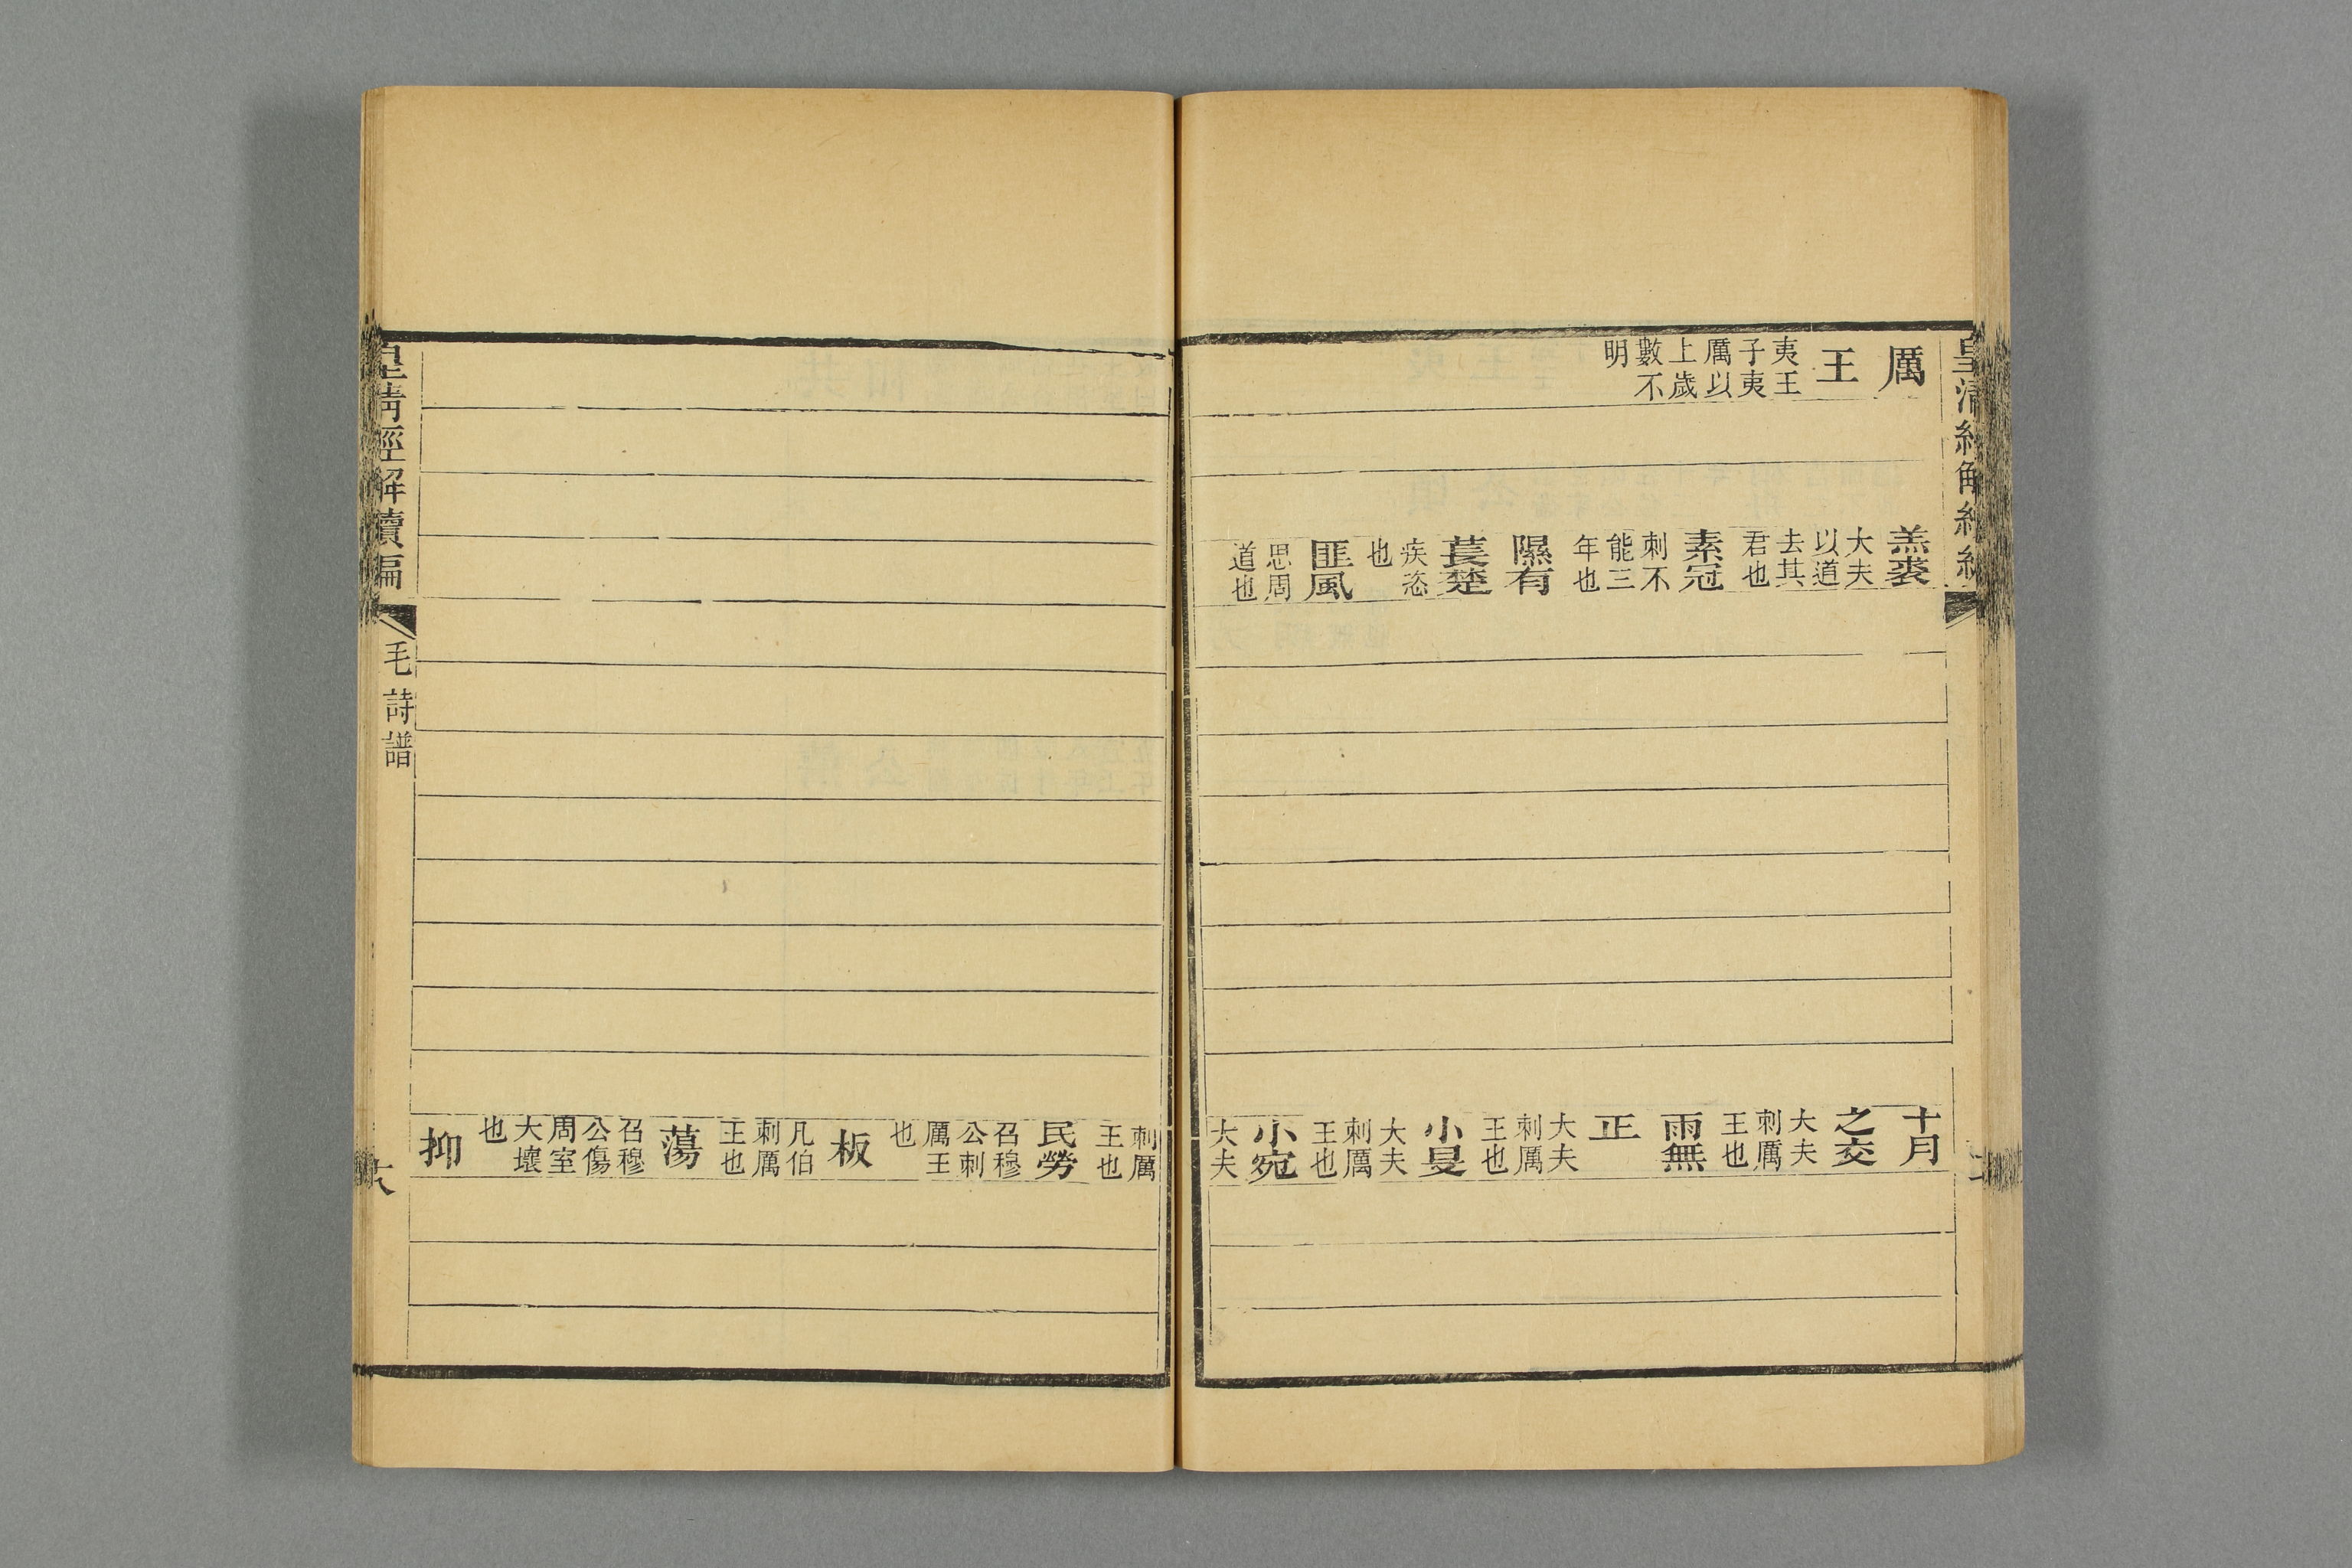 厲
王
夷王
子夷
厲以
上歲
數不
明
羔裘
大夫
以道
去其
君也
素冠
刺不
能三
年也
隰有
萇楚
疾恣
也
匪風
思周
道也
十月
之交
大夫
刺厲
王也
雨無
正
大夫
刺厲
王也
小旻
大夫
刺厲
王也
小宛
大夫
刺厲
王也
民勞
召穆
公刺
厲王
也
板
凡伯
刺厲
王也
蕩
召穆
公傷
周室
大壞
也
抑
皇清經解續編
毛詩譜
皇清經解續編